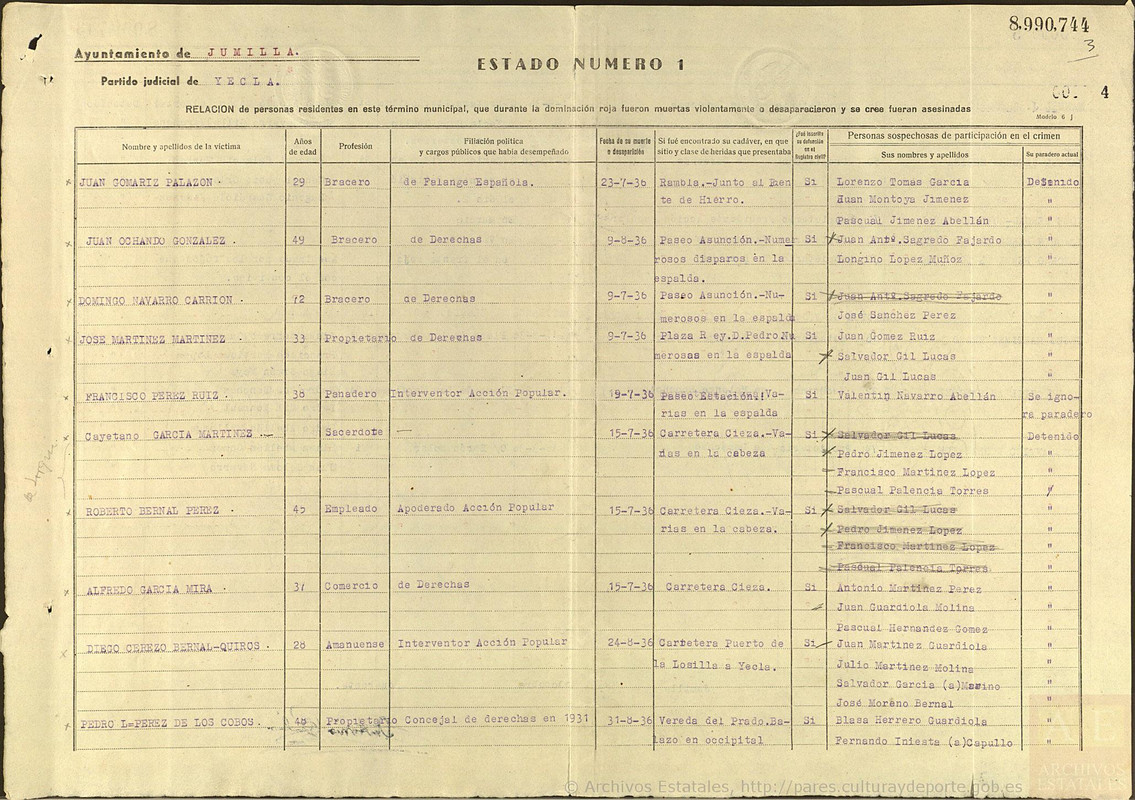 8.990,744
3
Ayuntamiento de JUMILLA.
Partido judicial de YECLA.
ESTADO NUMERO 1
4
RELACION de personas residentes en este término municipal, que durante la dominación roja fueron muertas violentamente o desaparecieron y se cree fueran asesinadas
Modelo 6
Nombre y apellidos de la víctima
Años de edad
Profesión
Filiación política y cargos públicos que había desempeñado
Fecha de su muerte o desaparición
Si fué encontrado su cadáver, en que sitio y clase de heridas que presentaba
¿Fué inscrita su defunción en el Registro civil?
Personas sospechosas de participación en el crimen
Sus nombres y apellidos
Su paradero actual
JUAN GOMARIZ PALAZON. 29 Bracero de Falange Española. 23-7-36 Rambla.-Junto al Puen Si Lorenzo Tomas Garcia Detenido
te de Hierro. Juan Montoya Jimenez "
Pascual Jimenez Abellán "
JUAN OCHANDO GONZALEZ. 49 Bracero de Derechas 9-8-36 Paseo Asunción.-Nume Si Juan Antº.Sagredo Fajardo "
rosos disparos en la Longino Lopez Muñoz "
espalda.
DOMINGO NAVARRO CARRION. Bracero de Derechas 9-7-36 Paseo Asunción.-Nu- Si Juan Antº.Sagredo Fajardo "
merosos en la espalda José Sanchez Perez "
JOSE MARTINEZ MARTINEZ. 33 Propietario de Derechas 9-7-36 Plaza R ey.D.Pedro.Nu Si Juan Gomez Ruiz "
merosas en la espalda Salvador Gil Lucas "
Juan Gil Lucas "
FRANCISCO PEREZ RUIZ. 38 Panadero Interventor Acción Popular. 19-7-36 Paseo Estación.-Va- Si Valentin Navarro Abellán Se igno-
rias en la espalda ra paradero
Cayetano GARCIA MARTINEZ.- Sacerdote — 15-7-36 Carretera Cieza.-Va- Si Salvador Gil Lucas Detenido
rias en la cabeza Pedro Jimenez Lopez "
Francisco Martinez Lopez "
Pascual Palencia Torres "
ROBERTO BERNAL PEREZ. 45 Empleado Apoderado Acción Popular 15-7-36 Carretera Cieza.-Va- Si Salvador Gil Lucas "
rias en la cabeza. Pedro Jimenez Lopez "
Francisco Martinez Lopez "
Pascual Palencia Torres "
ALFREDO GARCIA MIRA. 37 Comercio de Derechas 15-7-36 Carretera Cieza. Si Antonio Martinez Perez "
Juan Guardiola Molina "
Pascual Hernandez Gomez "
DIEGO CEREZO BERNAL-QUIROS. 28 Amanuense Interventor Acción Popular 24-8-36 Carretera Puerto de Si Juan Martinez Guardiola "
la Losilla a Yecla. Julio Martinez Molina "
Salvador Garcia (a)Marino "
José Moreno Bernal "
PEDRO L=PEREZ DE LOS COBOS. 48 Propietario Concejal de derechas en 1931 31-8-36 Vereda del Prado.Ba- Si Blasa Herrero Guardiola "
lazo en occipital Fernando Iniesta (a)Capullo "
AE
ARCHIVOS
ESTATALES
© Archivos Estatales, http://pares.culturaydeporte.gob.es